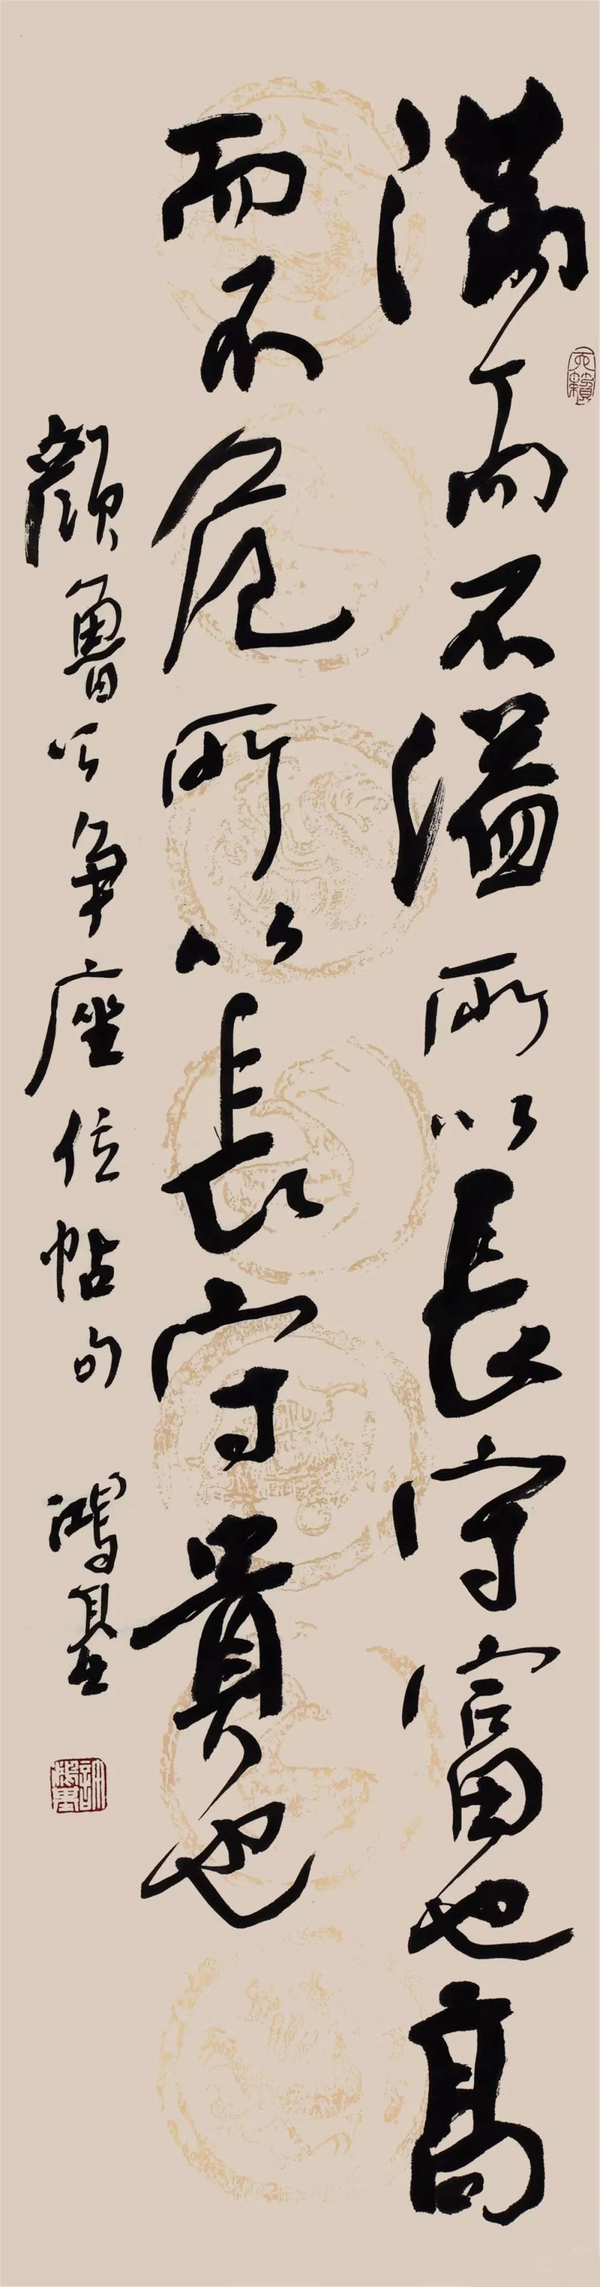 滿而不溢所以長守富也高
而不危所以長守貴也
顏魯公争座位帖句 鴻基
天籟